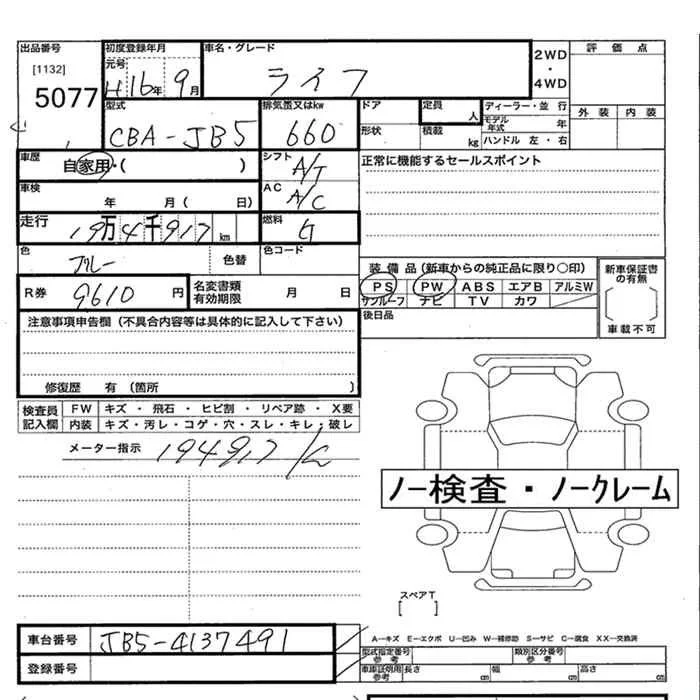 出品番号 初度登録年月 車名・グレード 2WD・4WD 評価点
[1132] 元号 H16年 9月 ライフ
5077 型式 排気量又はkw ドア 定員 人 ディーラー・並行 外装 内装
CBA-JB5 660 形状 積載 kg モデル年式 年 ハンドル 左・右
車歴 自家用・( ) シフト A/T 正常に機能するセールスポイント
車検 年 月( 日) AC A/C
走行 19万4千917km 燃料 G
色 ブルー 色替 色コード
装備品(新車からの純正品に限り○印) 新車保証書の有無
R券 9610円 名変書類有効期限 月 日 PS PW ABS エアB アルミW
サンルーフ ナビ TV カワ
注意事項申告欄(不具合内容等は具体的に記入して下さい) 後日品 車載不可
修復歴 有 (箇所 )
検査員 FW キズ・飛石・ヒビ割・リペア跡・X要
記入欄 内装 キズ・汚レ・コゲ・穴・スレ・キレ・破レ
メーター指示 194917K
ノー検査・ノークレーム
スペアT
[ ]
車台番号 JB5-4137491 A―キズ E―エクボ U―凹み W―補修跡 S―サビ C―腐食 XX―交換済
登録番号 型式指定番号 参考 類別区分番号 参考
車庫証明用 参考 長さ cm 幅 cm 高さ cm